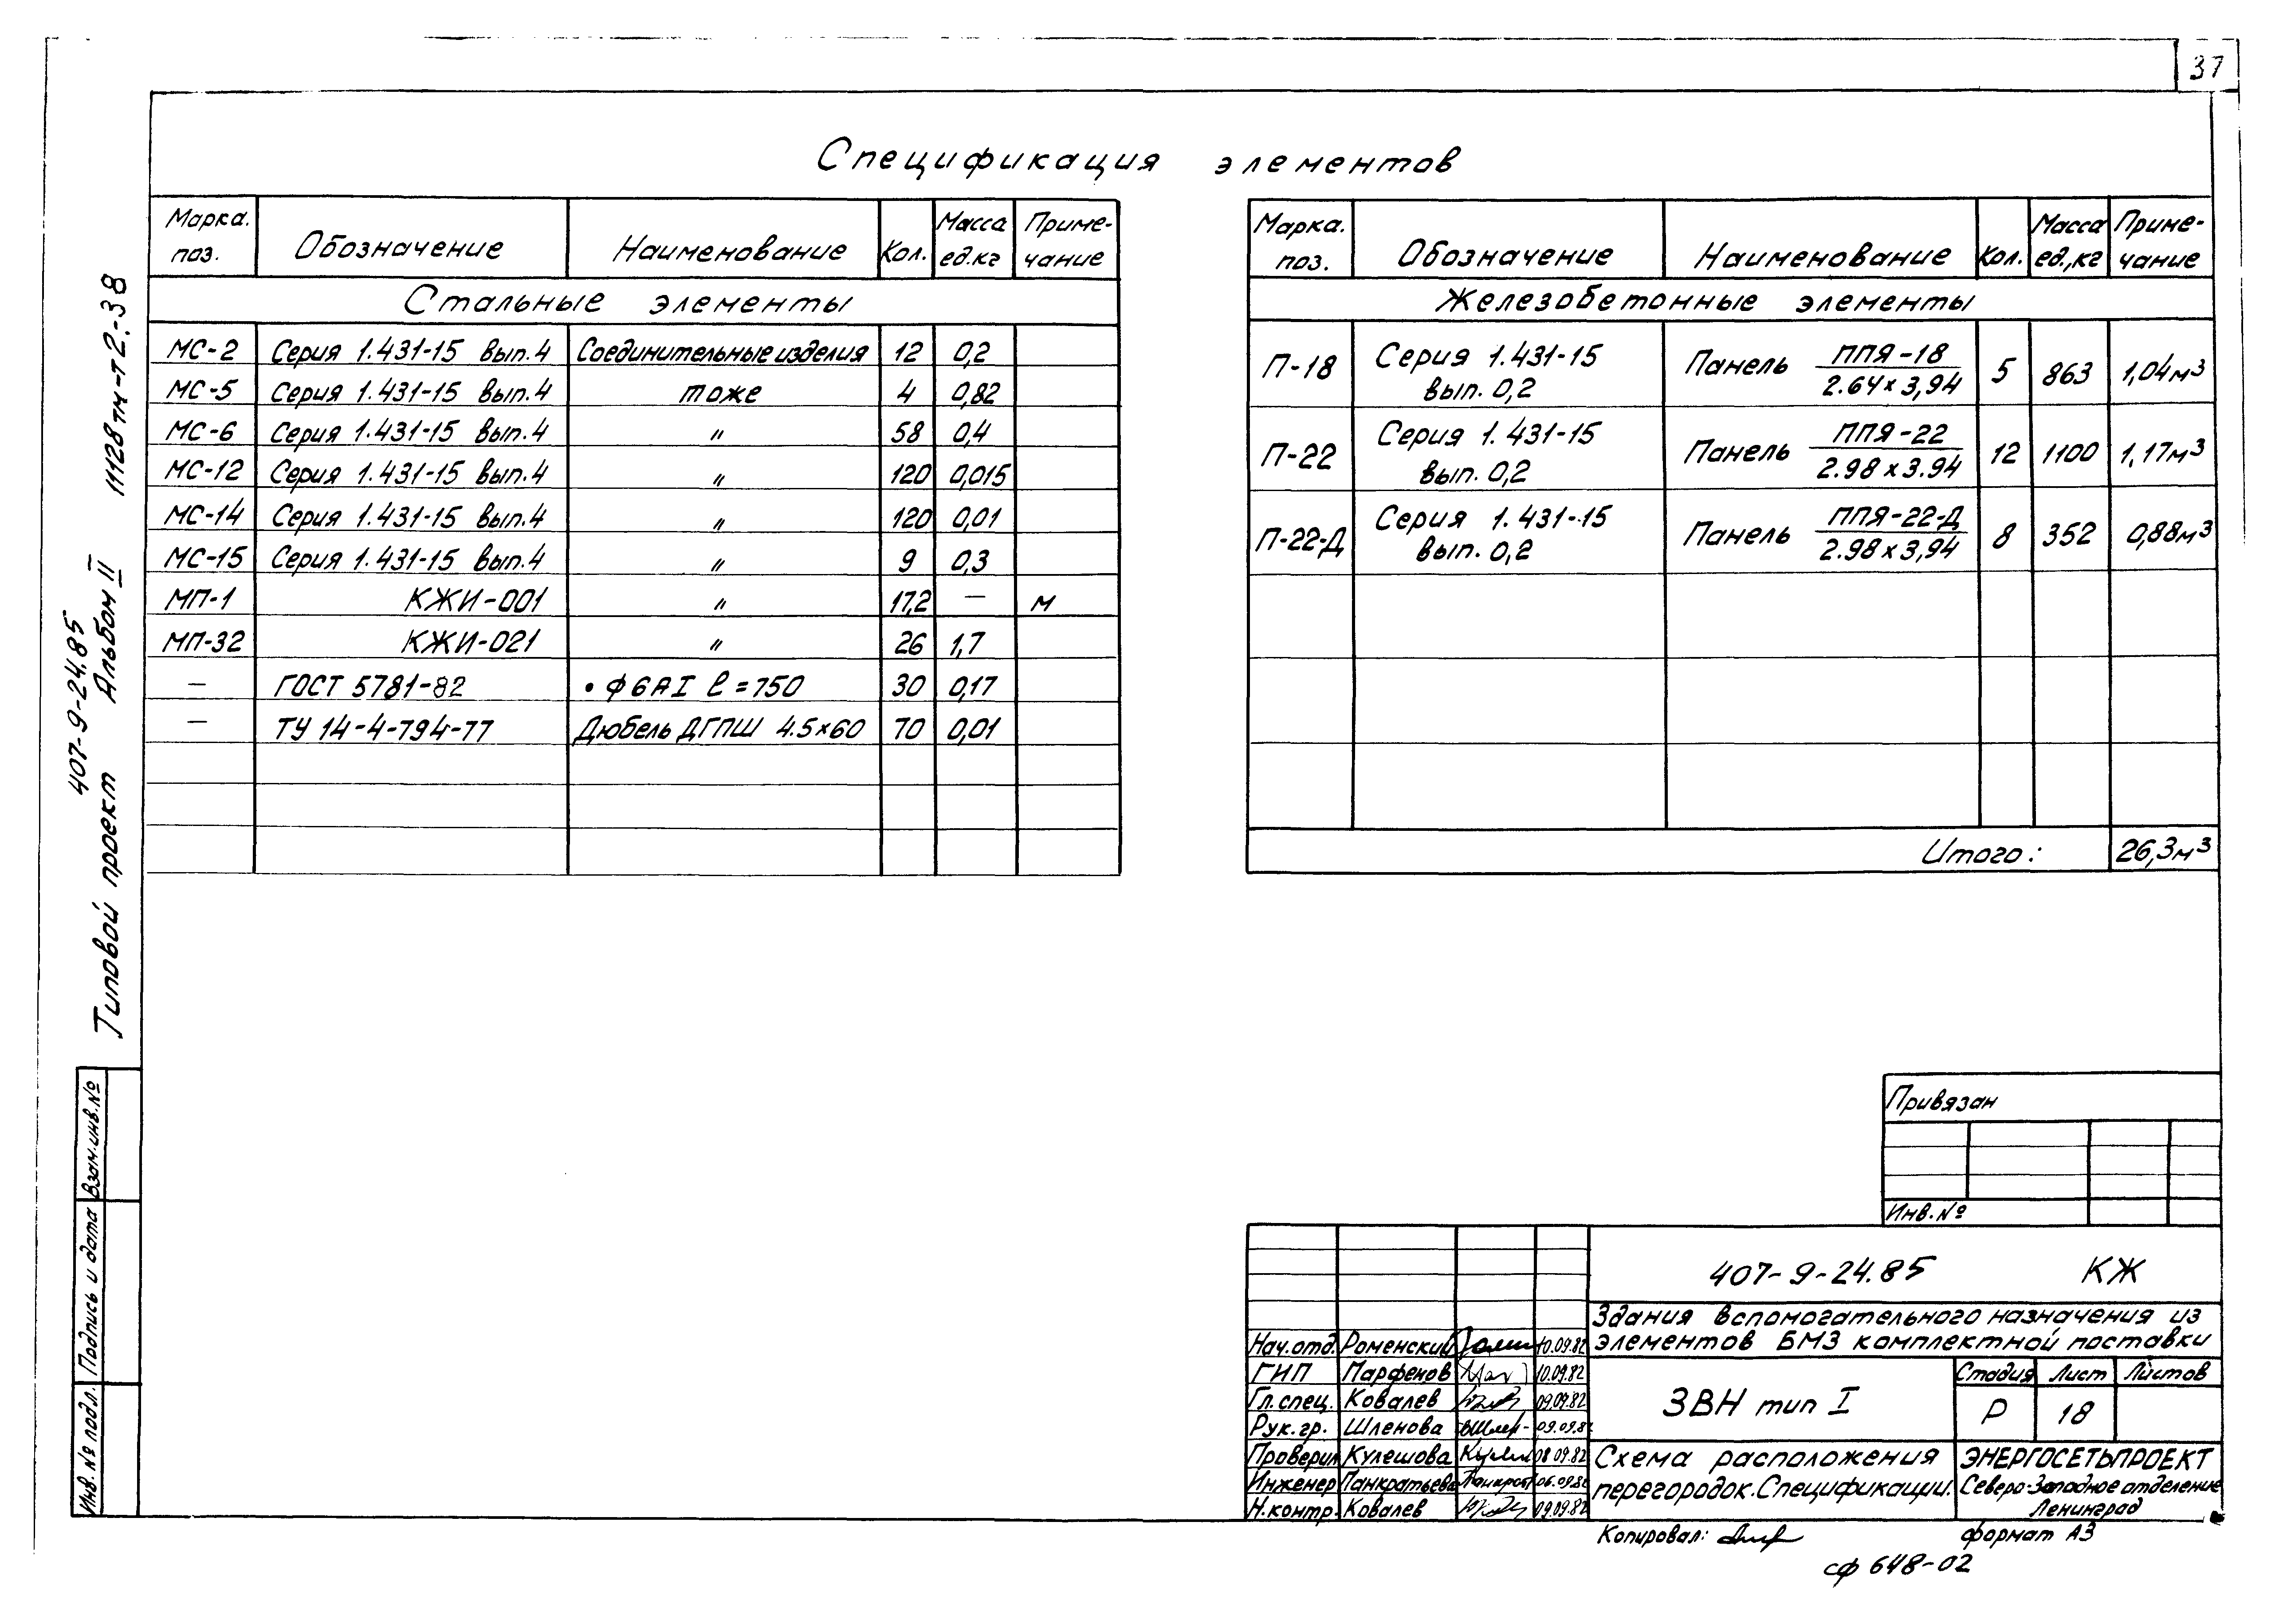 37
Спецификация элементов
Марка. поз. Обозначение Наименование Кол. Масса ед.кг Приме-чание
Стальные элементы
МС-2 Серия 1.431-15 вып.4 Соединительные изделия 12 0,2
МС-5 Серия 1.431-15 вып.4 тоже 4 0,82
МС-6 Серия 1.431-15 вып.4 " 58 0,4
МС-12 Серия 1.431-15 вып.4 " 120 0,015
МС-14 Серия 1.431-15 вып.4 " 120 0,01
МС-15 Серия 1.431-15 вып.4 " 9 0,3
МП-1 КЖИ-001 " 17,2 — м
МП-32 КЖИ-021 " 26 1,7
— ГОСТ 5781-82 • ф6АI ℓ=750 30 0,17
— ТУ 14-4-794-77 Дюбель ДГПШ 4.5×60 70 0,01
Марка. поз. Обозначение Наименование Кол. Масса ед.,кг Приме-чание
Железобетонные элементы
П-18 Серия 1.431-15 вып. 0,2 Панель ППЯ-18 2.64×3,94 5 863 1,04м³
П-22 Серия 1.431-15 вып. 0,2 Панель ППЯ-22 2.98×3.94 12 1100 1,17м³
П-22-Д Серия 1.431-15 вып. 0,2 Панель ППЯ-22-Д 2.98×3,94 8 352 0,88м³
Итого: 26,3м³
407-9-24.85
Типовой проект Альбом II 11128тм-т2.-38
Взам.инв.№
Подпись и дата
Инв.№ подл.
Привязан
Инв.№
407-9-24.85 КЖ
Здания вспомогательного назначения из
элементов БМЗ комплектной поставки
Нач.отд. Роменский 10.09.82
ГИП Парфенов 10.09.82
Гл.спец. Ковалев 09.09.82
Рук.гр. Шленова 09.09.82
Проверил Кулешова 08.09.82
Инженер Панкратьева 06.09.82
Н.контр. Ковалев 09.09.82
ЗВН тип I
Стадия Лист Листов
Р 18
Схема расположения
перегородок.Спецификации.
ЭНЕРГОСЕТЬПРОЕКТ
Северо-Западное отделение
Ленинград
Копировал:
формат А3
сф 648-02